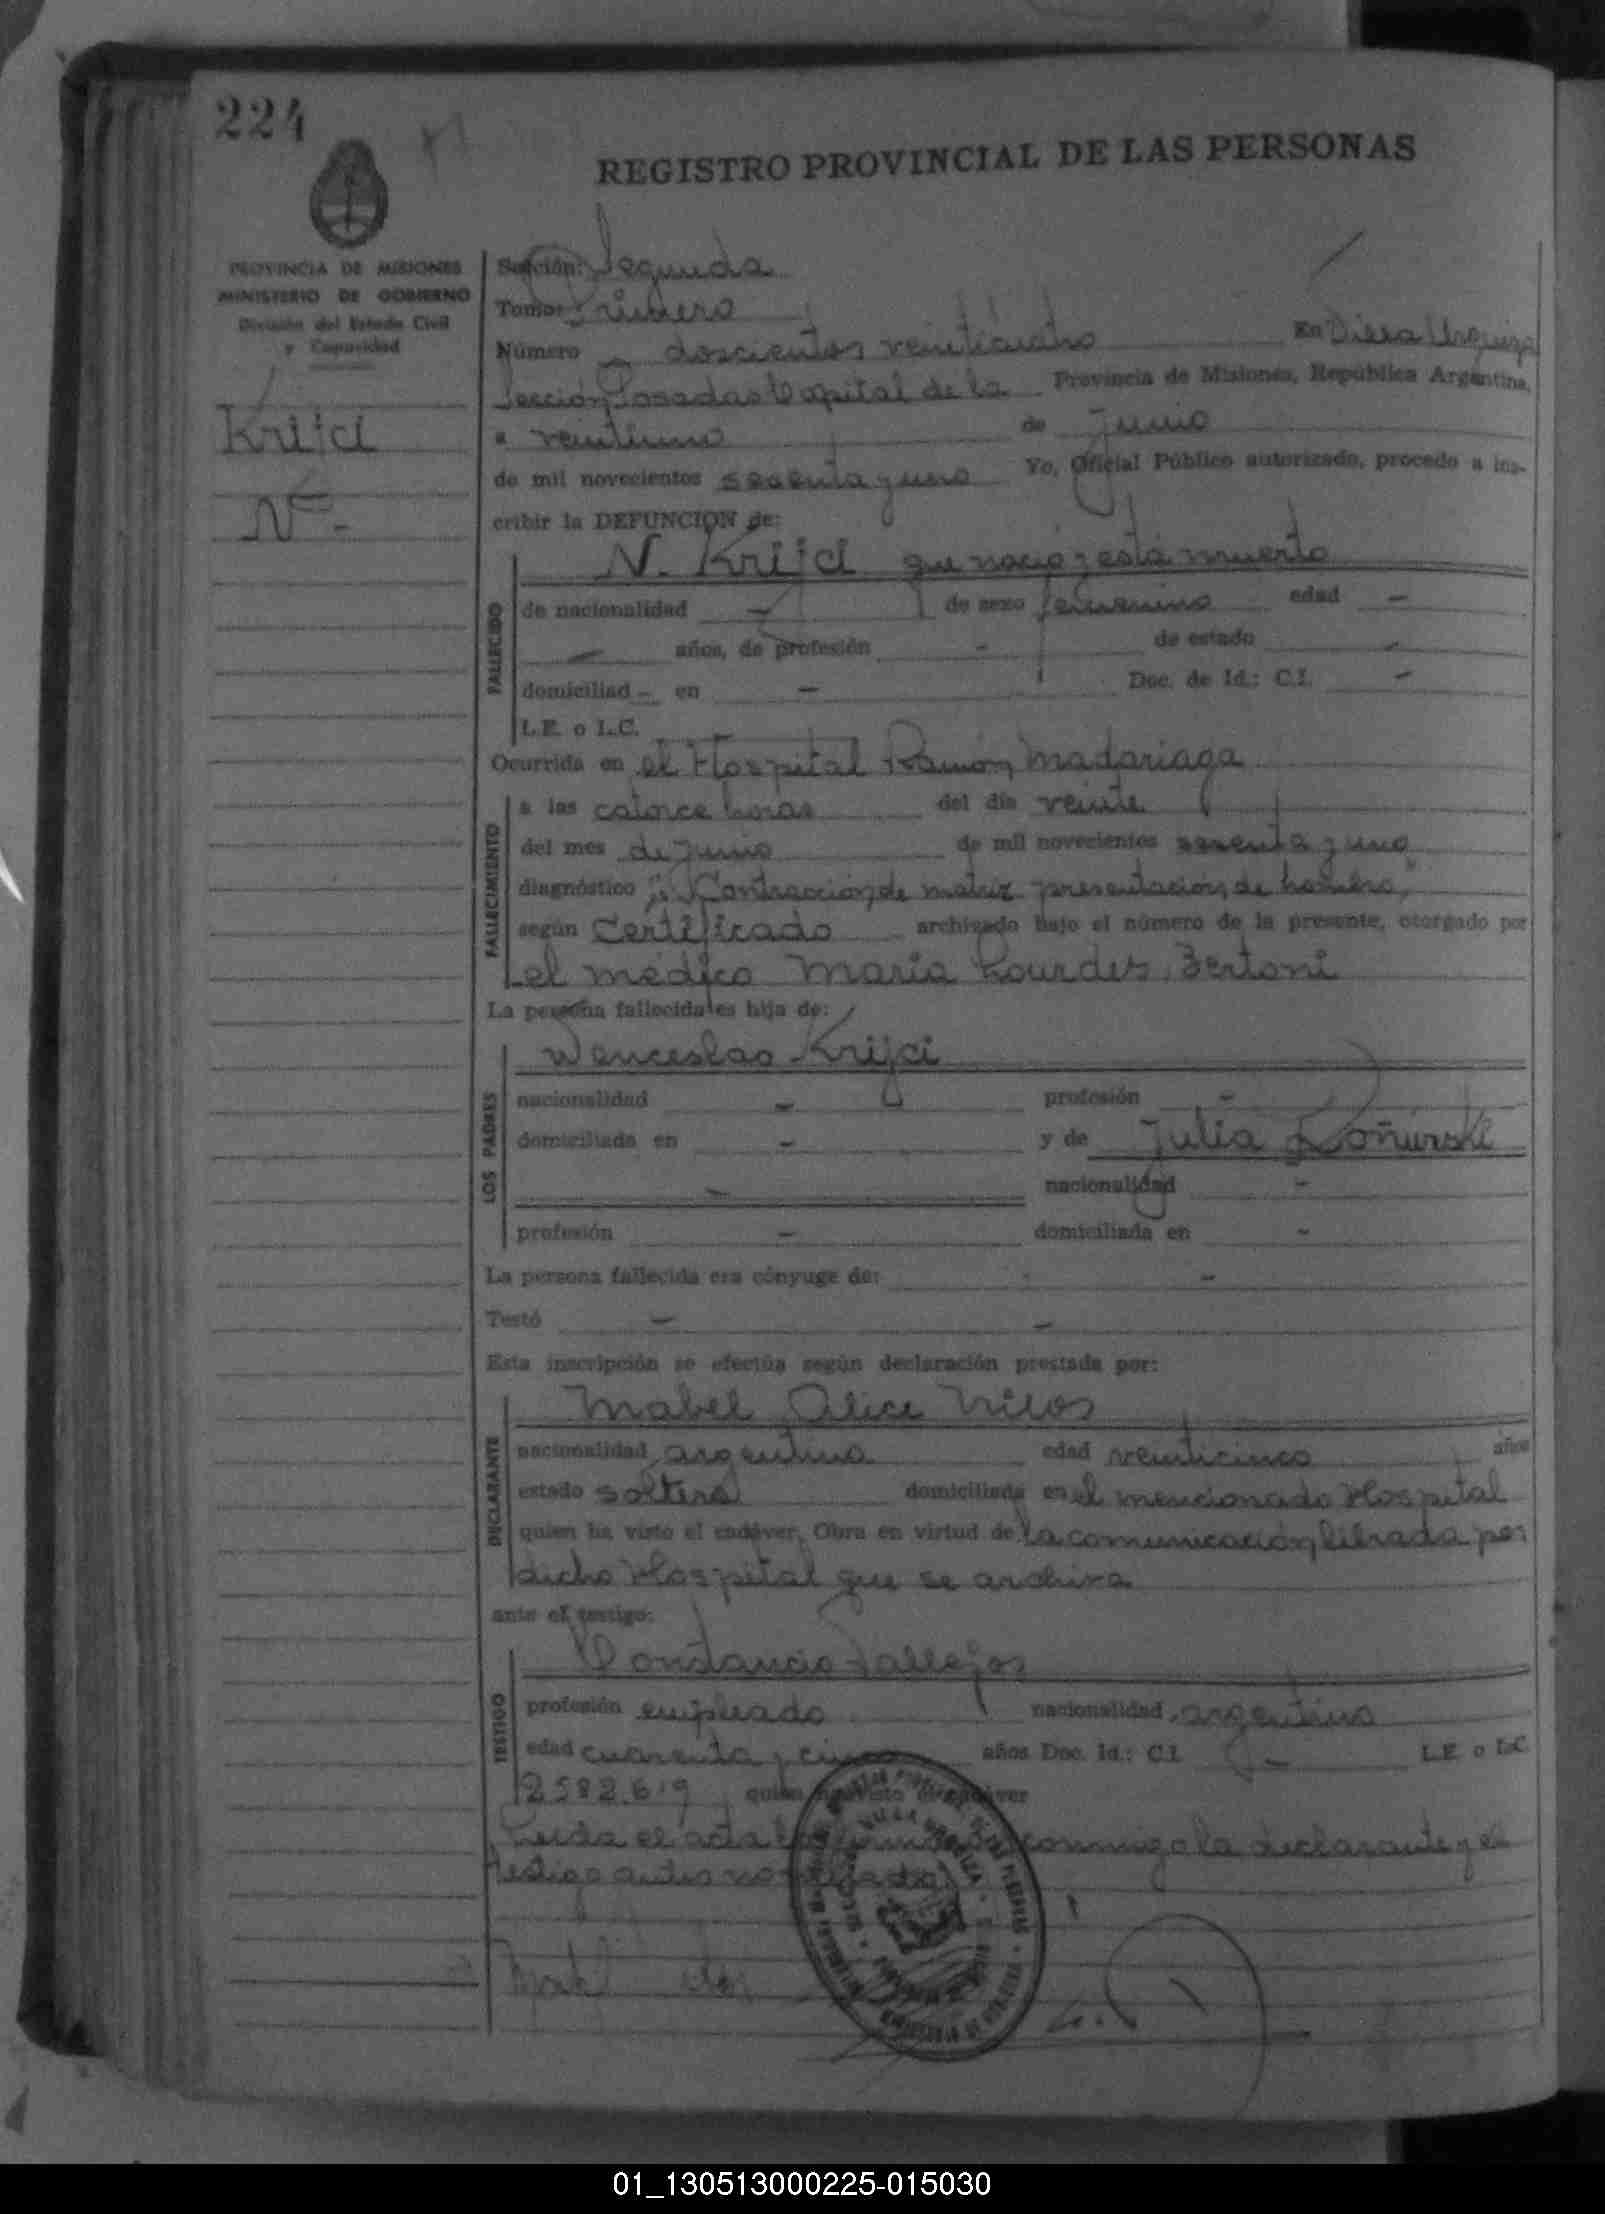 224
REGISTRO PROVINCIAL DE LAS PERSONAS
PROVINCIA DE MISIONES
MINISTERIO DE GOBIERNO
División del Estado Civil
y Capacidad
Krijci
N-
Sección: Segunda
Tomo: Primero
Número doscientos veinticuatro En Villa Urquiza
Sección Posadas Capital de la Provincia de Misiones, República Argentina,
a veintiuno de junio
de mil novecientos sesenta y uno Yo, Oficial Público autorizado, procedo a ins-
cribir la DEFUNCION de:
N. Krijci que nació y está muerto
FALLECIDO
de nacionalidad - de sexo femenino edad -
- años, de profesión - de estado -
domiciliad - en - Doc. de Id.: C.I. -
L.E. o L.C. -
Ocurrida en el Hospital Ramón Madariaga
FALLECIMIENTO
a las catorce horas del día veinte
del mes de junio de mil novecientos sesenta y uno
diagnóstico "Contracción de matriz presentación de hombro"
según Certificado archivado bajo el número de la presente, otorgado por
el médico María Lourdes Bertoni
La persona fallecida es hija de:
LOS PADRES
Wenceslao Krijci
nacionalidad - profesión -
domiciliada en - y de Julia
- nacionalidad -
profesión - domiciliada en -
La persona fallecida era cónyuge de: -
Testó - -
Esta inscripción se efectúa según declaración prestada por:
DECLARANTE
Mabel Alice
nacionalidad argentina edad veinticinco años
estado soltera domiciliada en el mencionado Hospital
quien ha visto el cadáver, Obra en virtud de la comunicación librada por
dicho Hospital que se archiva
ante el testigo:
TESTIGO
Constancio Vallejos
profesión empleado nacionalidad argentino
edad cuarenta y cinco años Doc. Id.: C.I. - L.E. o L.C.
2582619 quien ha visto el cadáver
Leida el acta la conmigo la declarante y el
testigo antes nombrado
VILLA URQUIZA
01_130513000225-015030